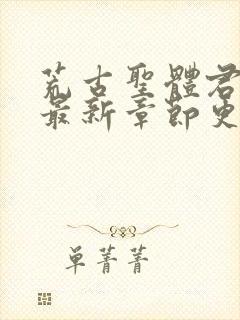 荒古聖體君
最新章節史
单菁菁